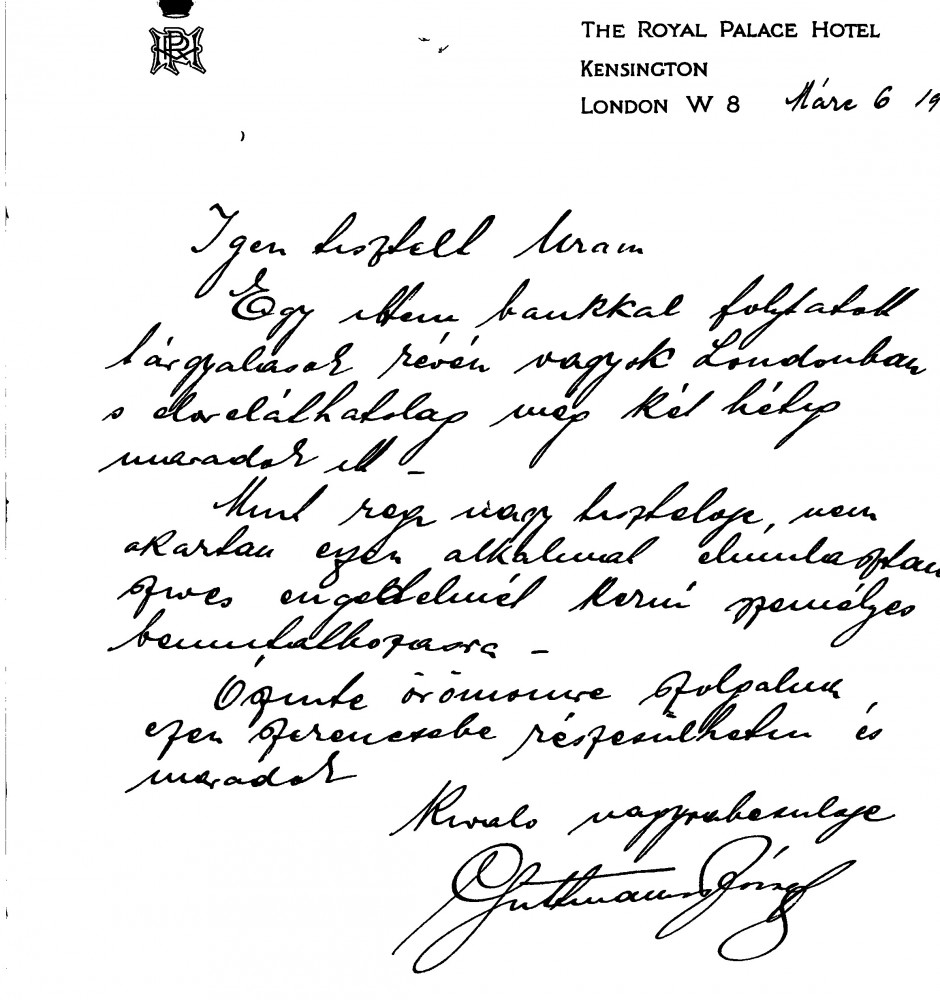 THE ROYAL PALACE HOTEL
KENSINGTON
LONDON W 8 Márc 6 19
Igen tisztelt Uram
Egy itteni bankkal folytatott
tárgyalások révén vagyok Londonban
s előreláthatolag még két hétig
maradok itt –
Mint regi nagy tisztelője, nem
akartam ezen alkalmat elmulasztani
szives engedelmét kerni személyes
bemutatkozasra –
Őszinte örömömre szolgalna
ezen szerencsebe részesülhetni és
maradok
Kivalo nagyrabecsuloje
Guttmann József